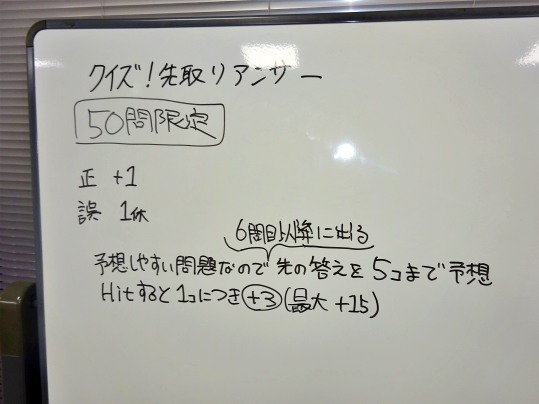 クイズ!先取りアンサー
50問限定
正 +1
誤 1休
6問目以降に出る
予想しやすい問題なので先の答えを5コまで予想
Hitすると1コにつき+3(最大 +15)